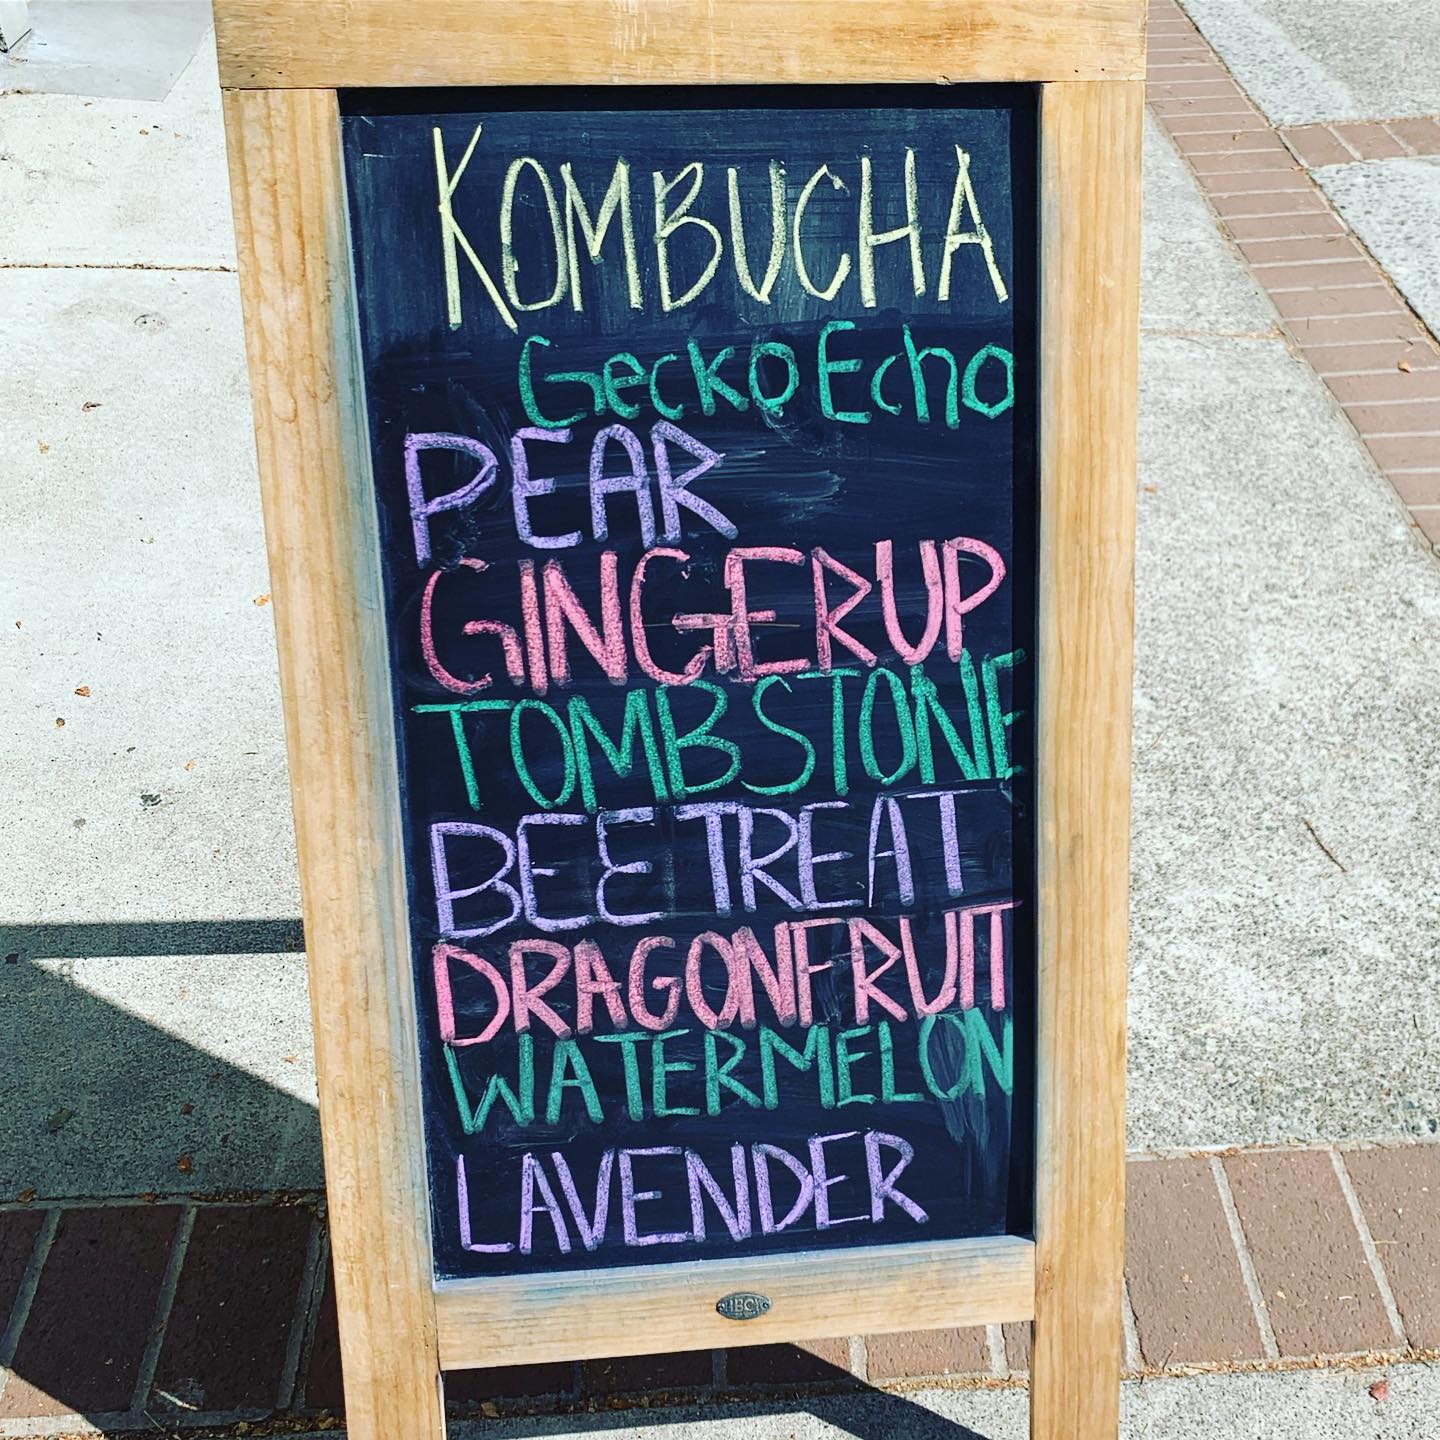 KOMBUCHA
Gecko Echo
PEAR
GINGERUP
TOMBSTONE
BEETREAT
DRAGONFRUIT
WATERMELON
LAVENDER
IBC